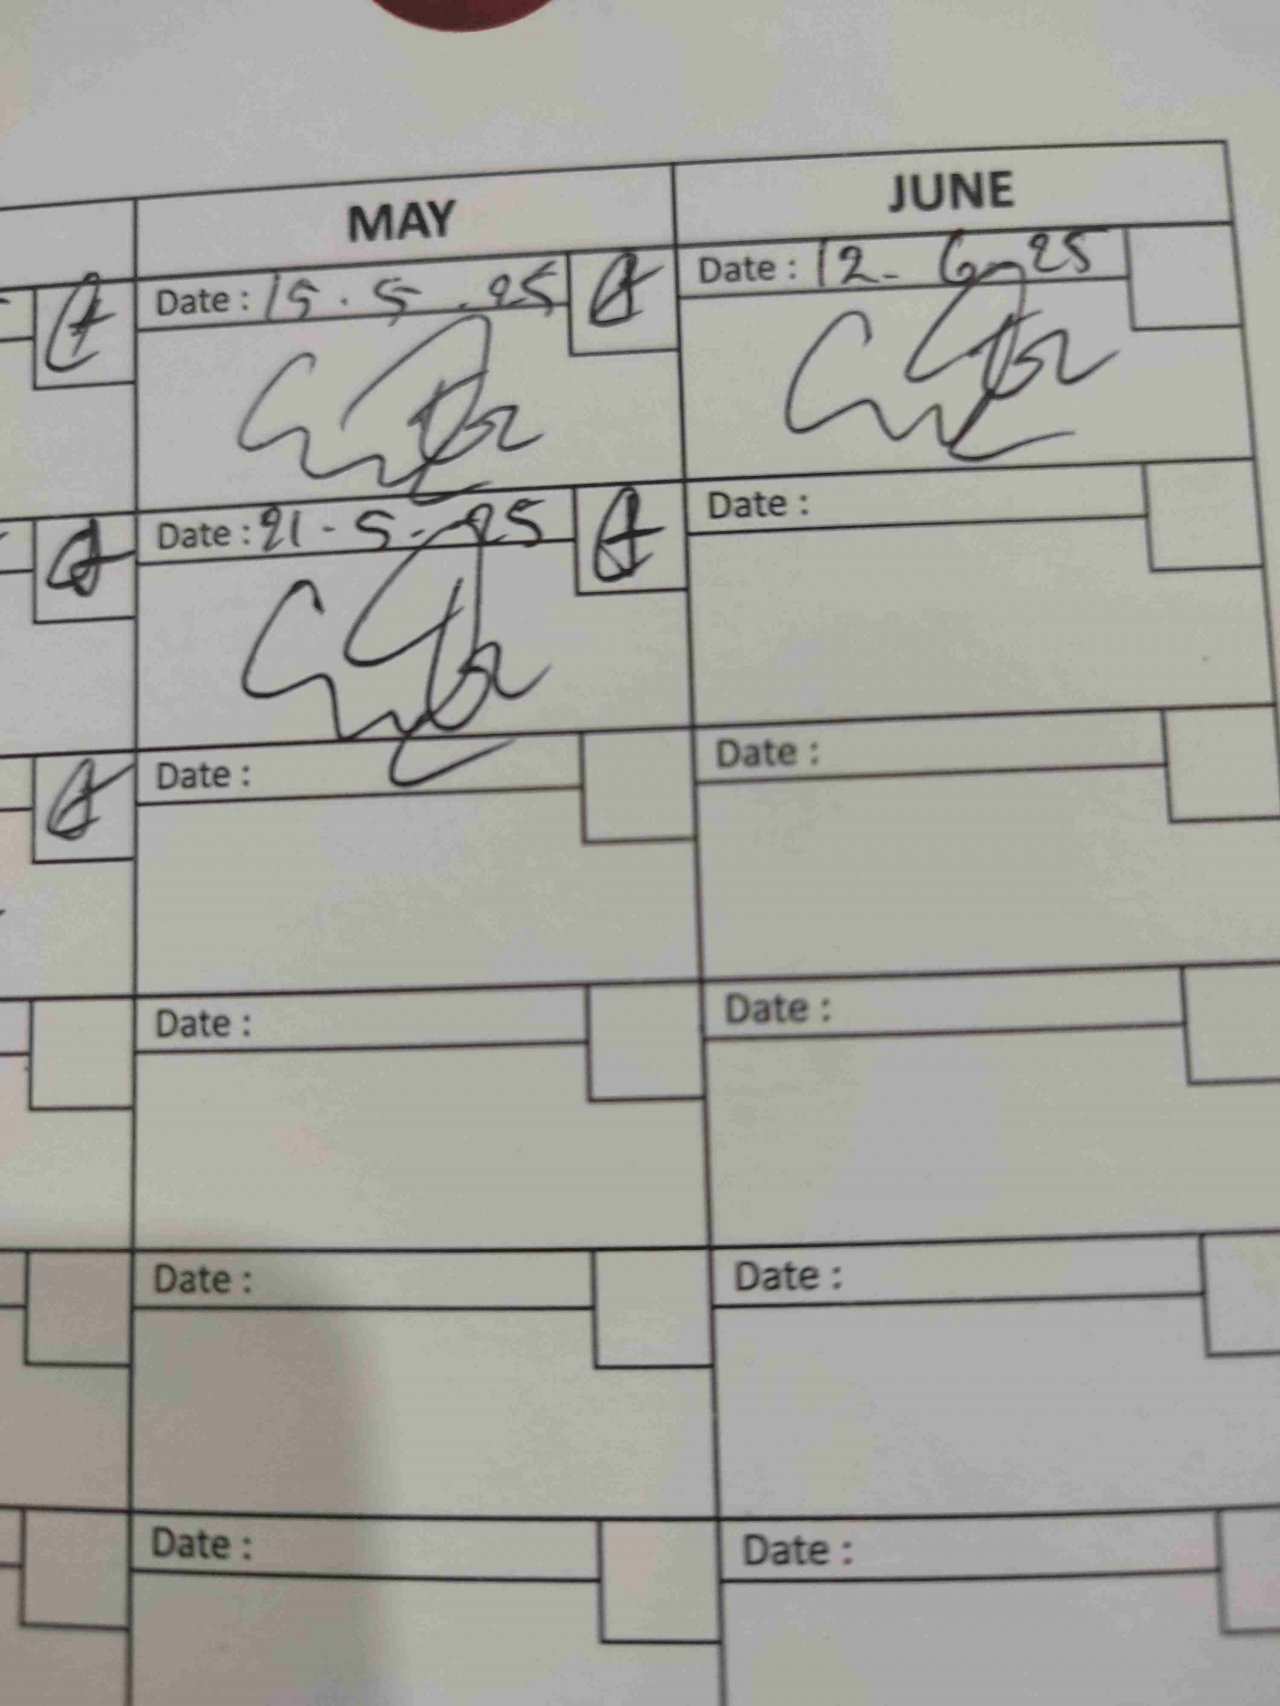 MAY JUNE
Date : 15.5.25 Date : 12-6-25
Date : 21-5-25 Date :
Date : Date :
Date : Date :
Date : Date :
Date : Date :